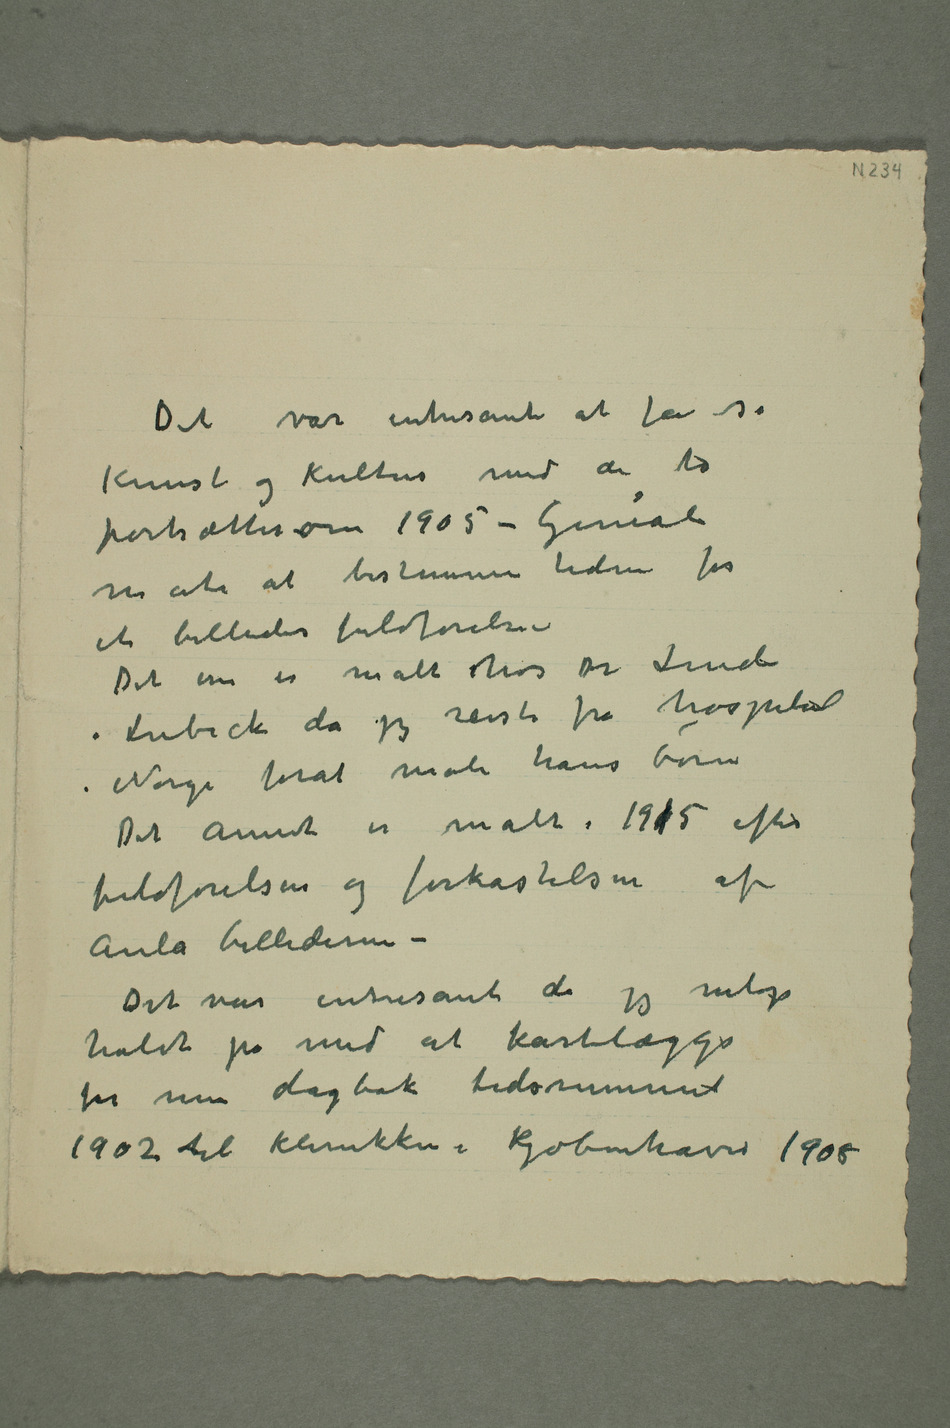 N 234
Det var intresant at få se
Kunst og Kultur med de to
portrætter om 1905 – Genial
måte at bestemme tiden for
et billedes fuldførelse
Det ene er malt hos Dr Linde
i Lübeck da jeg reiste fra hospital
i Norge forat male hans börn
Det annet er malt i 1915 efter
fuldførelsen og forkastelsen af
Aula billederne –
Det var intresant da jeg netop
holdt på med at kartlægge
for min dagbok tidsrummet
1902 til Klinikken i Kjøbenhavn 1908